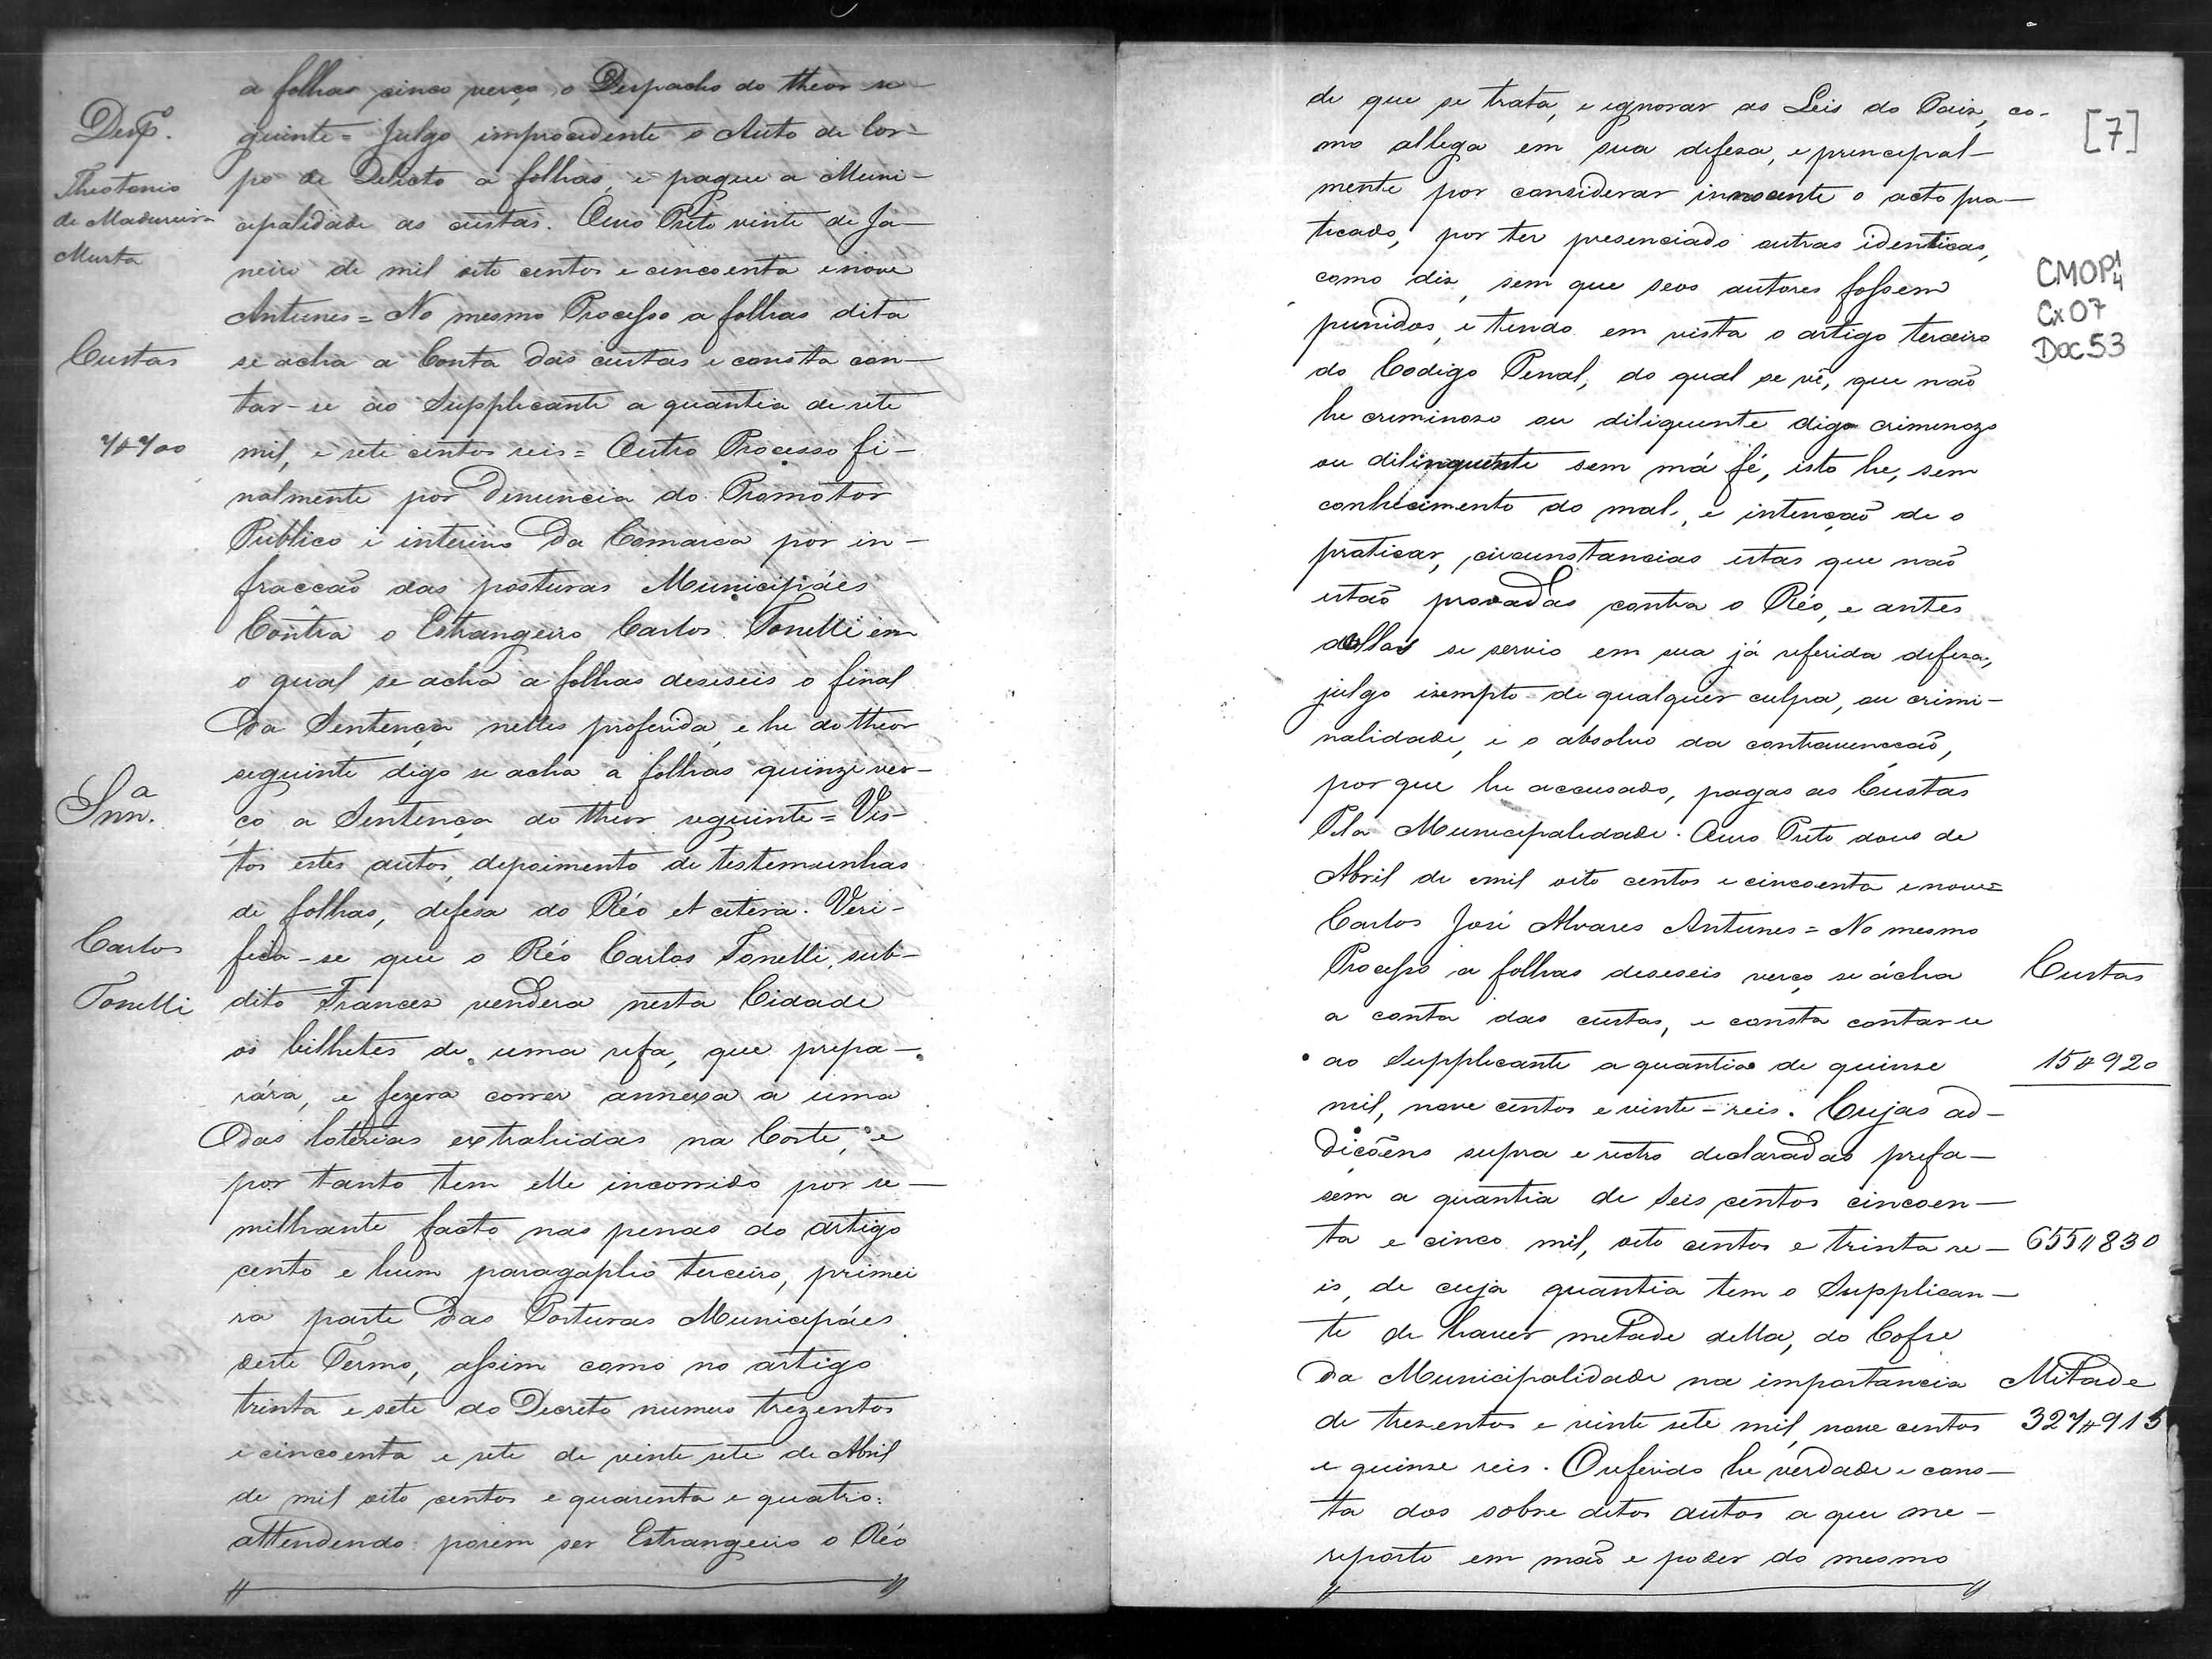 a folhas cinco verço o Despacho do theor se-
Desp.º
guinte = Julgo improcedente o Auto de Cor-
Theotonio
po de Delicto a folhas, e pague a Muni-
de Madureira
cipalidade as custas. Ouro Preto vinte de Ja-
Murta
neiro de mil oito centos e cincoenta e nove
Antunes = No mesmo Processo a folhas dita
Custas
se acha a Conta das custas e consta con-
tar-se ao Supplicante a quantia de sete
7#700
mil, e sete centos reis = Outro Processo fi-
nalmente por Denuncia do Promotor
Publico i interino da Comarca por in-
fracção das posturas Municipáes
Contra o Estrangeiro Carlos Tonelli em
o qual se acha a folhas deseseis o final
da Sentença nelles proferida, e he do theor
seguinte digo se acha a folhas quinze ver-
Snn.ª
ço a Sentença do theor seguinte = Vis-
tos estes autos, depoimento de testemunhas
de folhas, defesa do Réo et cetera. Veri-
Carlos
fica-se que o Réo Carlos Tonelli, sub-
Tonelli
dito Francez vendera nesta Cidade
os bilhetes de uma rifa, que prepa-
rára, e fezera correr annexa a uma
das loterias extrahidas na Corte, e
por tanto tem elle incorrido por se-
milhante facto nas penas do artigo
cento e hum paragaphio terceiro, primei
ra parte das Posturas Municipáes
deste Termo, assim como no artigo
trinta e sete do Decreto numero trezentos
e cincoenta e sete de vinte sete de Abril
de mil oito centos e quarenta e quatro:
attendendo porem ser Estrangeiro o Réo
de que se trata, e ignorar as Leis do Paiz, co-
[7]
mo allega em sua defesa, e principal-
mente por considerar innocente o acto pra-
ticado, por ter presenciado outras identicas,
CMOP 1/4
Cx 07
Doc 53
como diz, sem que seos autores fossem
punidos, e tendo em vista o artigo terceiro
do Codigo Penal, do qual se vê, que não
he criminoso ou diliquente digo criminozo
ou dilinquente sem má fé, isto he, sem
conhecimento do mal, e intenção de o
praticar, circunstancias estas que não
estão provadas contra o Réo, e antes
dellas se servio em sua já referida defesa,
julgo isempto de qualquer culpa, ou crimi-
nalidade, e o absolvo da contravencão,
por que he accusado, pagas as Custas
Pela Municipalidade. Ouro Preto dous de
Abril de mil oito centos e cincoenta e nove =
Carlos José Alvares Antunes = No mesmo
Processo a folhas deseseis verço se ácha
Custas
a conta das custas, e consta contar-se
ao Supplicante a quantia de quinse
15#920
mil, nove centos e vinte-reis. Cujas ad-
diçoens supra e retro declaradas prefa-
sem a quantia de Seis centos cincoen-
ta e cinco mil, oito centos e trinta re-
655#830
is, de cuja quantia tem o Supplican-
te de haver metade della, do Cofre
da Municipalidade na importancia
Metade
de tresentos e vinte sete mil nove centos
327#915
e quinse reis. O referido he verdade e cons-
ta dos sobre ditos autos a que me-
reporto em mão e poder do mesmo